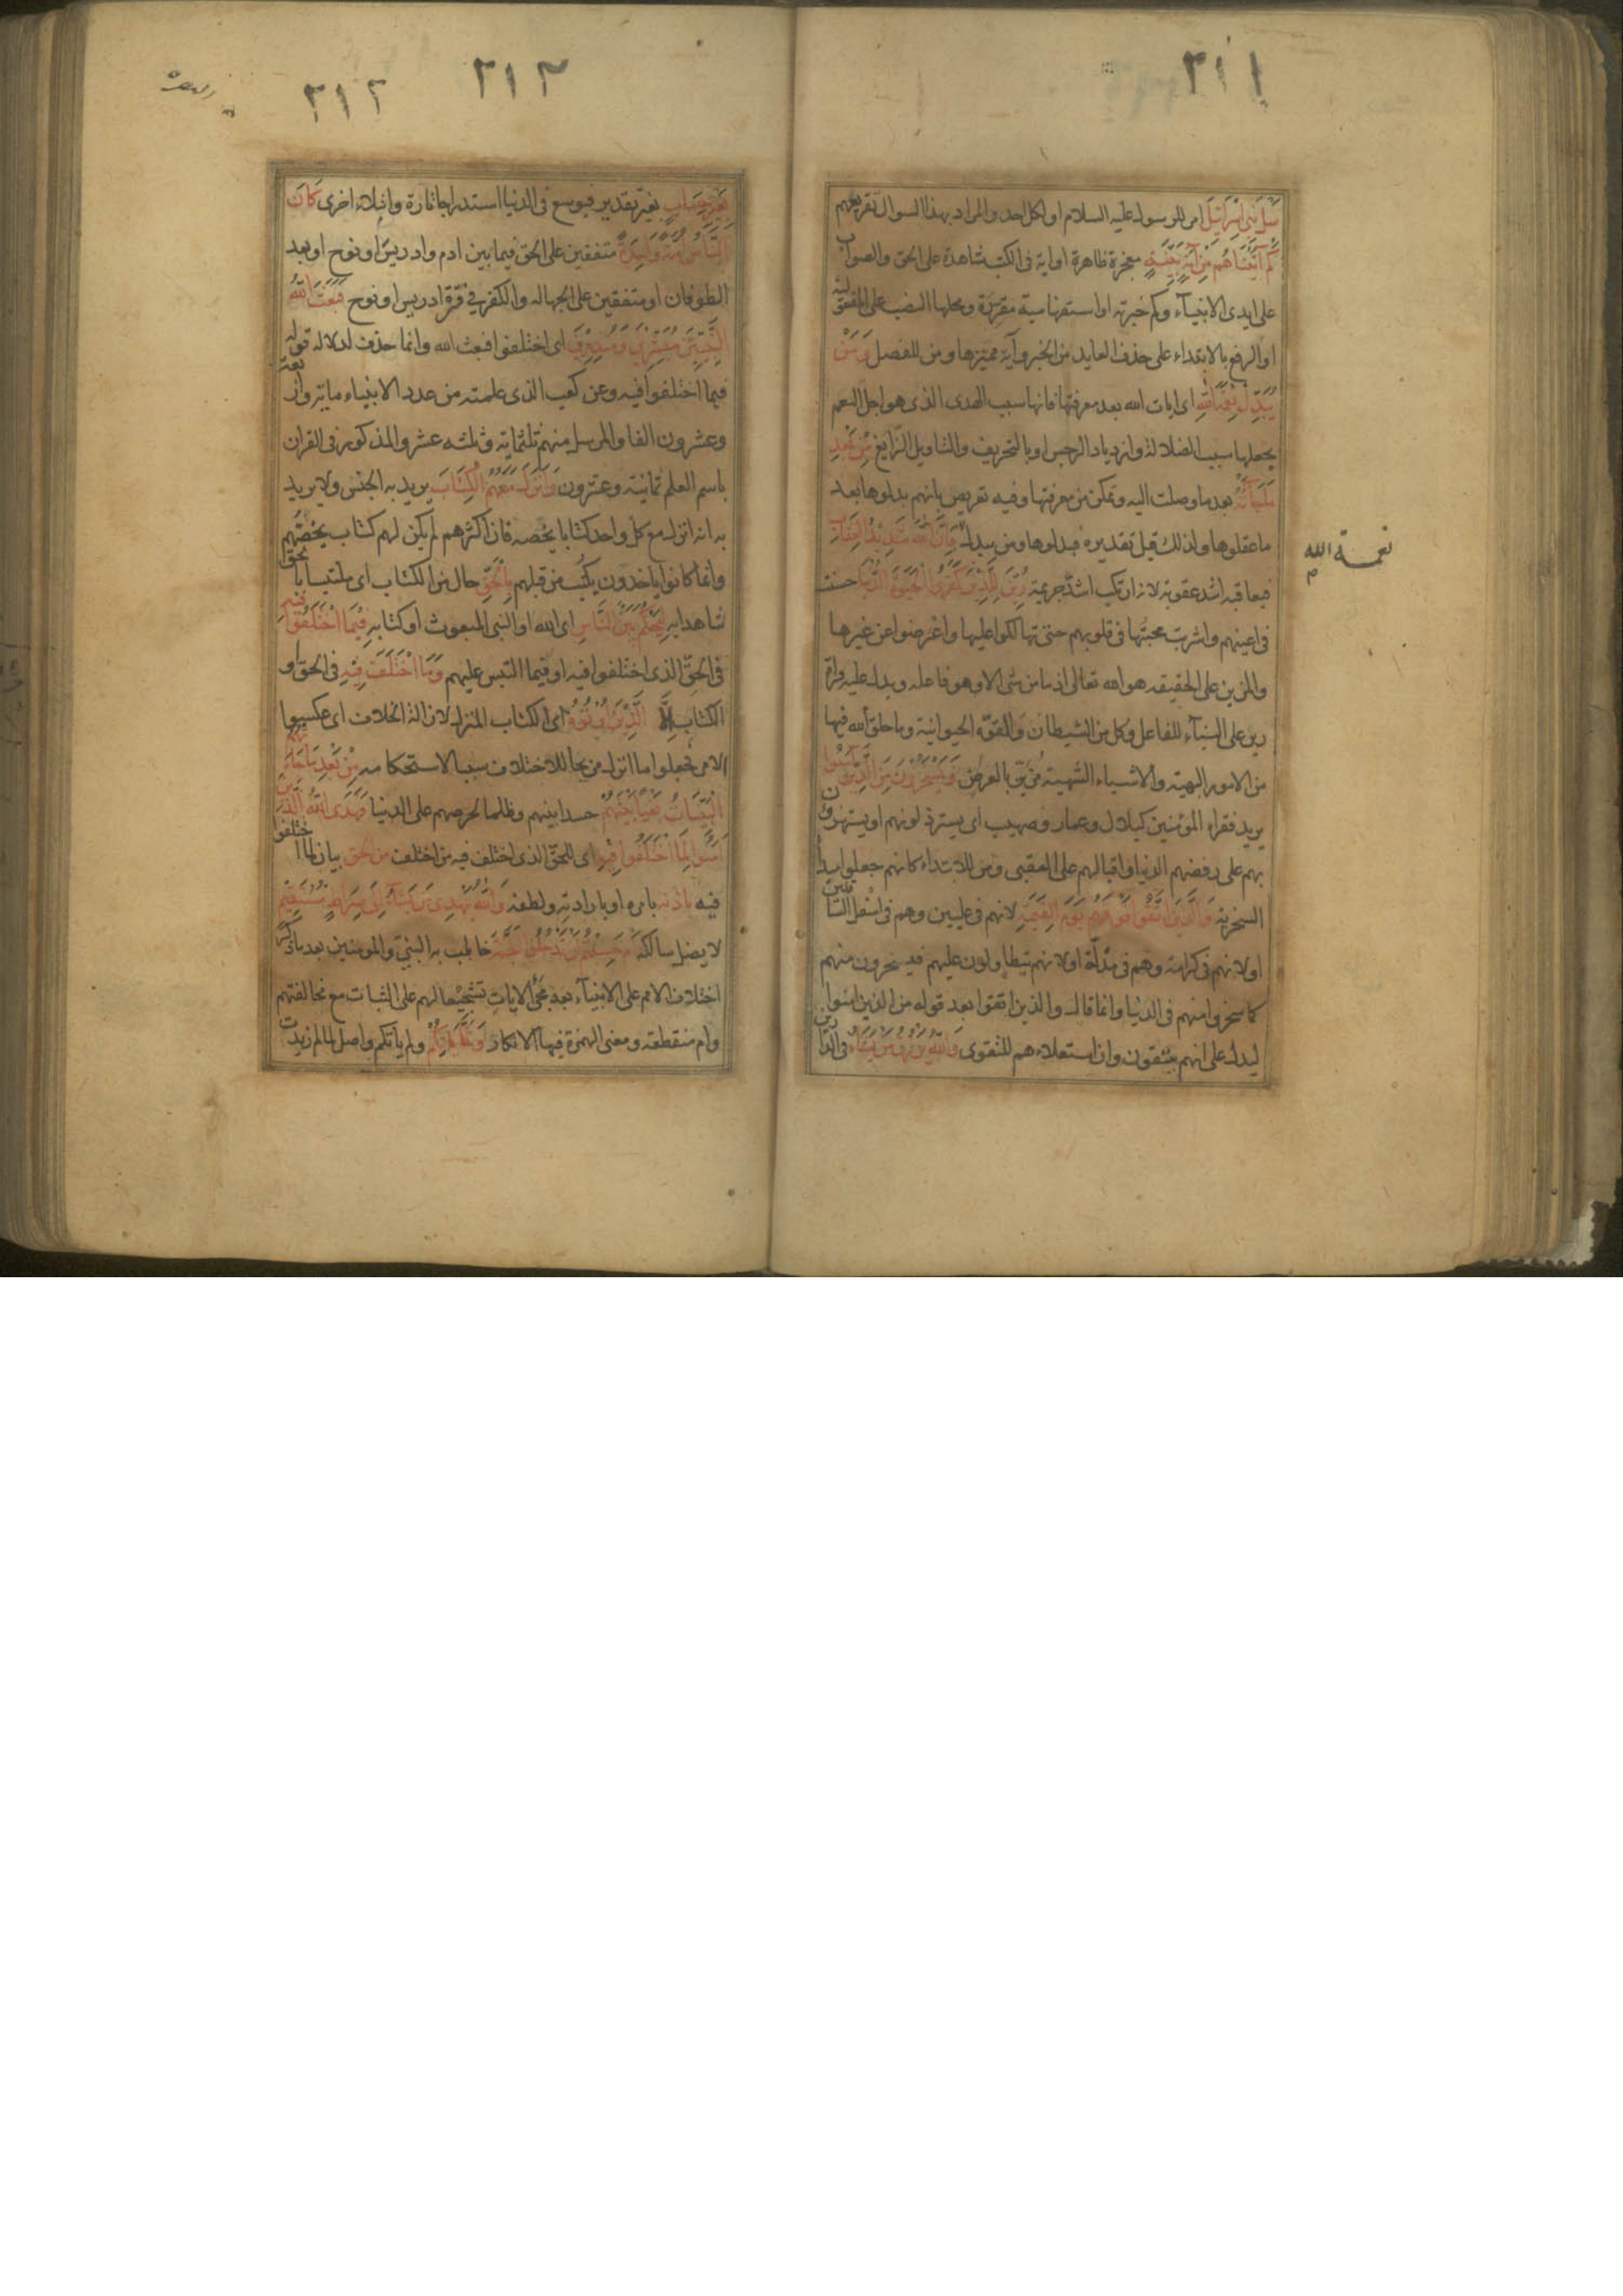 ٢١١
سل بنى اسرائيل امر للرسول عليه السلام او لكل احد والمراد بهذا السوال تقريعهم
كم اتيناهم من آية بينة معجزة ظاهرة او اية فى الكتب شاهدة على الحق والصواب
على ايدى الانبياء وكم خبرية او استفهامية مقررة ومحلها النصب على المفعولية
او الرفع بالابتداء على حذف العايد من الخبر وآية مميزها ومن للفصل ومن
يبدل نعمة الله اى ايات الله بعد معرفتها فانها سبب الهدى الذى هو اجل النعم
يجعلها سبب الضلالة وازدياد الرجس او بالتحريف والتاويل الزايغ من بعد
ما جاءته بعد ما وصلت اليه وتمكن من معرفتها وفيه تعريض بانهم بدلوها بعد
ما عقلوها ولذلك قيل تقديره فبدلوها ومن يبدل فان الله شديد العقاب
نعمة الله
م
فيعاقبه اشد عقوبة لانه ارتكب اشد جريمة زين للذين كفروا الحيوة الدنيا حسنت
فى اعينهم واشربت محبتها فى قلوبهم حتى تهالكوا عليها واعرضوا عن غيرها
والمزين على الحقيقه هو الله تعالى اذ ما من شى الا وهو فاعله ويدل عليه قراة
زين على البناء للفاعل وكل من الشيطان والقوة الحيوانية وما خلق الله فيها
من الامور البهية والاشياء الشهية مزين بالعرض ويسخرون من الذين آمنوا
يريد فقراء المؤمنين كبلال وعمار وصهيب اى يسترذلونهم او يستهزؤن
بهم على رفضهم الدنيا واقبالهم على العقبى ومن للابتداء كانهم جعلوا مبدأ
السخرية والذين اتقوا فوقهم يوم القيمة لانهم فى عليين وهم فى اسفل السافلين
او لانهم فى كرامة وهم فى مذلة او لانهم يتطاولون عليهم فيسخرون منهم
كما سخروا منهم فى الدنيا وانما قال والذين اتقوا بعد قوله من الذين امنوا
ليدل على انهم متقون وان استعلاءهم للتقوى والله يرزق من يشاء فى الدارين
٢١٣
٢١٢
بغير حساب بغير تقدير فيوسع فى الدنيا استدراجا تارة وابتلاء اخرى كان
الناس امة واحدة متفقين على الحق فيما بين ادم وادريس او نوح او بعد
الطوفان او متفقين على الجهاله والكفر فى فترة ادريس او نوح فبعث الله
النبيين مبشرين ومنذرين اى اختلفوا فبعث الله وانما حذف لدلالة قوله
فيما اختلفوا فيه وعن كعب الذى علمته من عدد الانبياء ماية واربعة
وعشرون الفا والمرسل منهم ثلثماية وثلثه عشر والمذكور فى القران
باسم العلم ثمانية وعشرون وانزل معهم الكتاب يريد به الجنس ولا يريد
به انه انزل مع كل واحد كتابا يخصه فان اكثرهم لم يكن لهم كتاب يخصهم
وانما كانوا ياخذون بكتب من قبلهم بالحق حال من الكتاب اى ملتبسا بالحق
شاهدا به ليحكم بين الناس اى الله او النبى المبعوث او كتابه فيما اختلفوا فيه
فى الحق الذى اختلفوا فيه او فيما التبس عليهم وما اختلف فيه فى الحق او
الكتاب الا الذين اوتوه اى الكتاب المنزل لازالة الخلاف اى عكسوا
الامر فجعلوا ما انزل مزيحا للاختلاف سببا لاستحكامه من بعد ما جاءتهم
البينات بغيا بينهم حسدا بينهم وظلما لحرصهم على الدنيا فهدى الله الذين
امنوا لما اختلفوا فيه اى للحق الذى اختلف فيه من اختلف من الحق بيان لما اختلفوا
فيه باذنه بامره او بارادته ولطفه والله يهدى من يشاء الى صراط مستقيم
لا يضل سالكه ام حسبتم ان تدخلوا الجنة خاطب به النبى والمومنين بعد ما ذكر
اختلاف الامم على الانبياء بعد مجئ الايات تشجيعا لهم على الثبات مع مخالفتهم
وام منقطعة ومعنى الهمزة فيها الانكار ولما ياتكم ولم ياتكم واصل لما لم زيدت